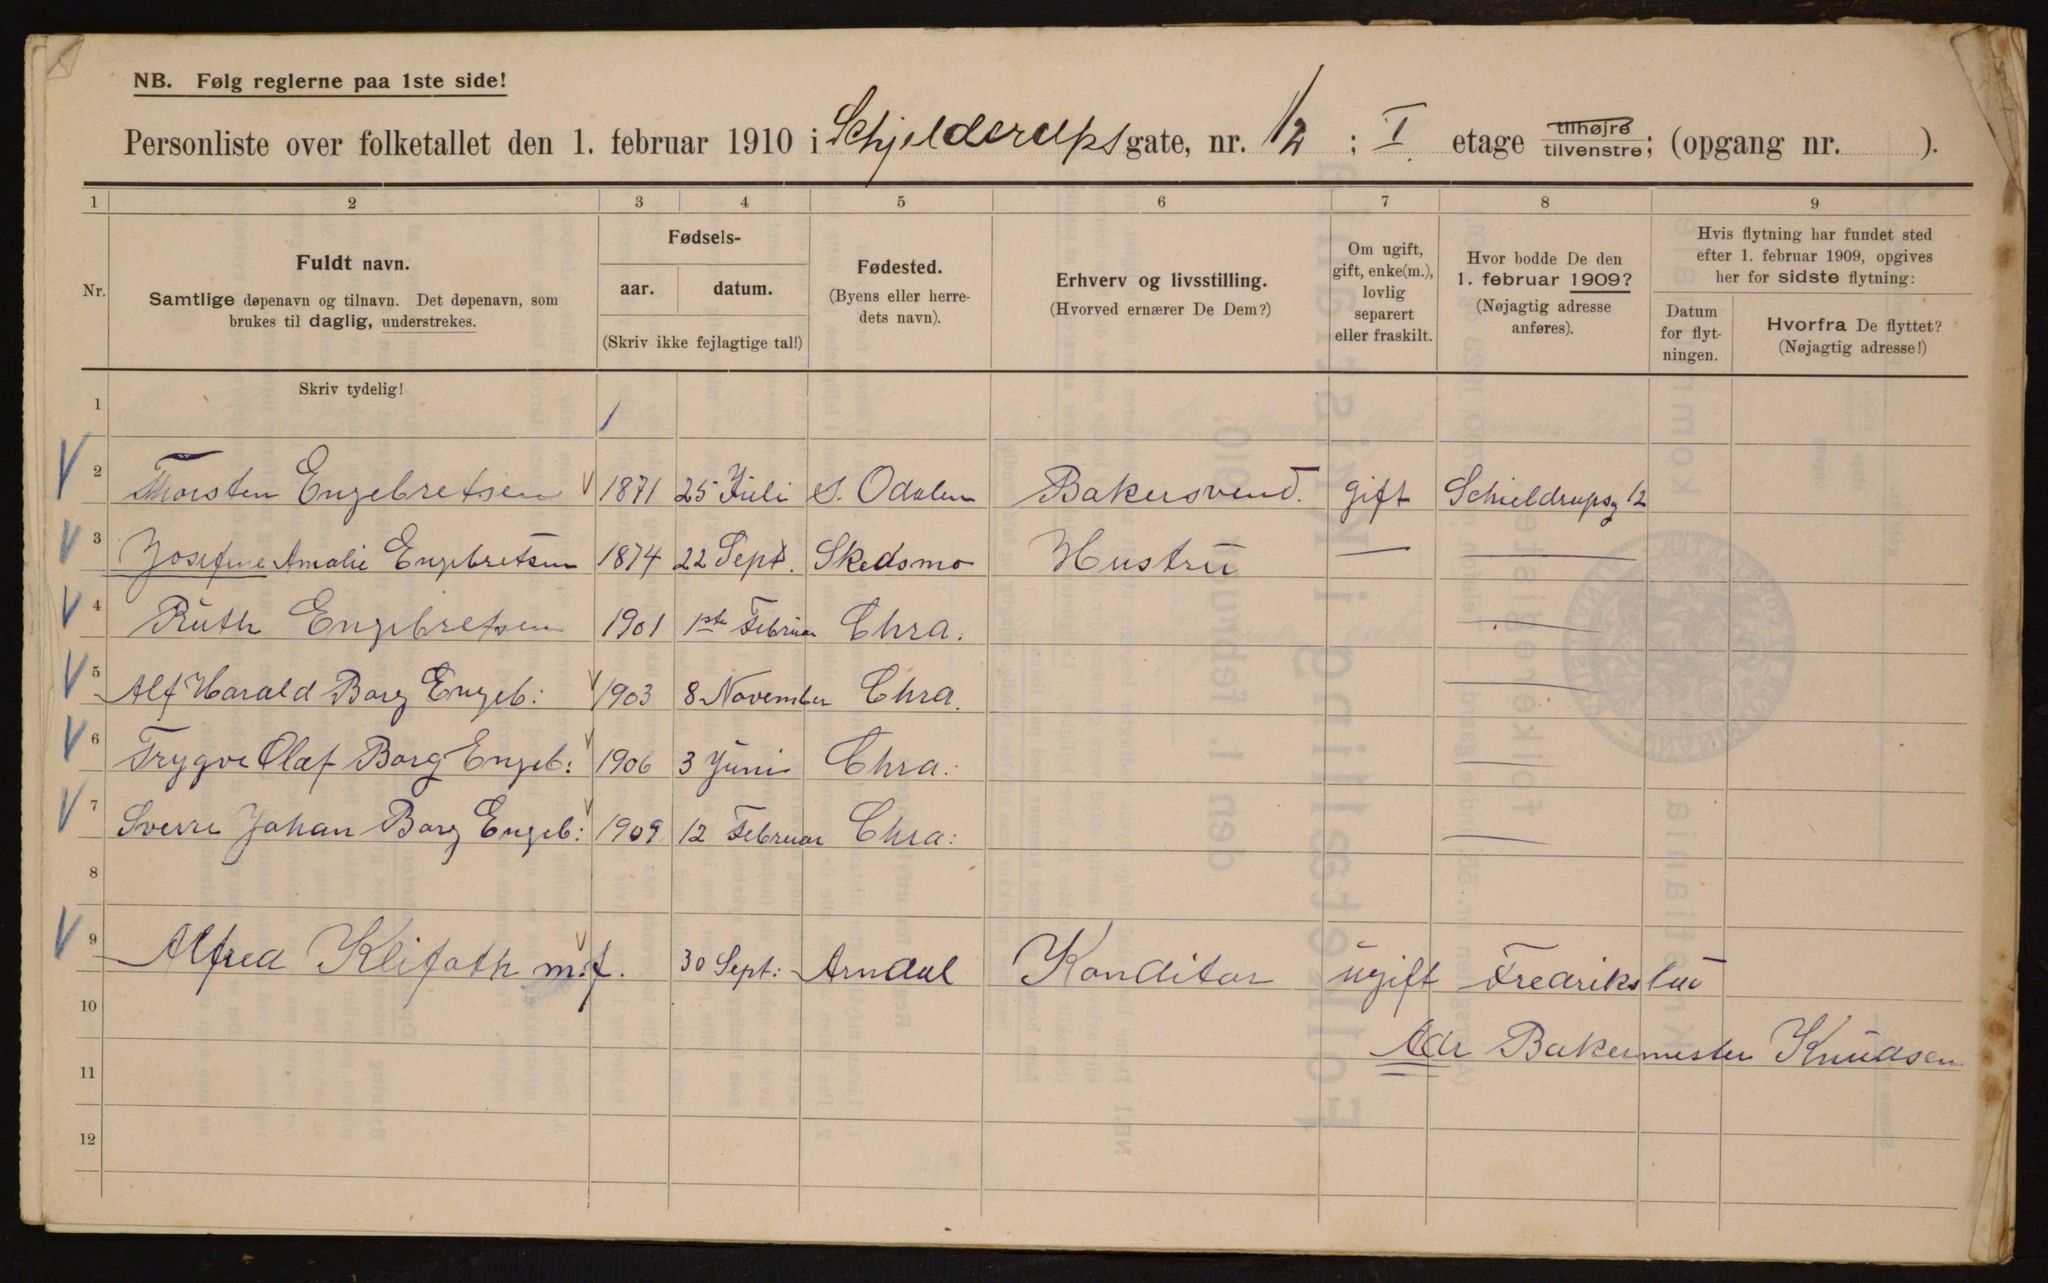 NB. Følg reglerne paa 1ste side!
Personliste over folketallet den 1. februar 1910 i Schjelderups gate, nr. 12; I etage tilhøjre tilvenstre; (opgang nr. ).
1 2 3 4 5 6 7 8 9
Nr.
Fuldt navn.
Samtlige døpenavn og tilnavn. Det døpenavn, som
brukes til daglig, understrekes.
Fødsels-
aar. datum.
(Skriv ikke fejlagtige tal!)
Fødested.
(Byens eller herre-
dets navn).
Erhverv og livsstilling.
(Hvorved ernærer De Dem?)
Om ugift,
gift, enke(m.),
lovlig
separert
eller fraskilt.
Hvor bodde De den
1. februar 1909?
(Nøjagtig adresse
anføres).
Hvis flytning har fundet sted
efter 1. februar 1909, opgives
her for sidste flytning:
Datum
for flyt-
ningen.
Hvorfra De flyttet?
(Nøjagtig adresse!)
Skriv tydelig!
1
2 Thorsten Engebretsen 1871 25 Juli S. Odalen Bakersvend. gift Schieldrupsg 12
3 Josefine Amalie Engebretsen 1874 22 Sept. Skedsmo Hustru — —
4 Ruth Engebretsen 1901 1ste Februar Chra. —
5 Alf Harald Borg Engeb: 1903 8 November Chra. —
6 Trygve Olaf Borg Engeb: 1906 3 Juni Chra: —
7 Sverre Johan Borg Engeb: 1909 12 Februar Chra: —
8
9 Alfred Klifoth m.f. 30 Sept: Arndal Konditor ugift Fredrikstad
10
Adr Bakermester Knudsen
11
12